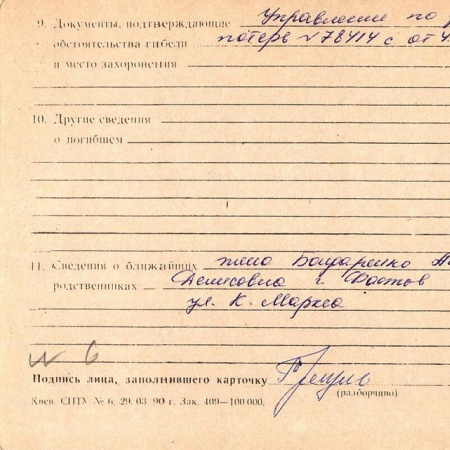 9. Документы, подтверждающие Управление по
обстоятельства гибели потерь №78414 с от 4
и место захоронения
10. Другие сведения
о погибшем
11. Сведения о ближайших жена Бондаренко
родственниках Денисовна г. Фастов
ул. К. Маркса
№ 6
Подпись лица, заполнившего карточку
(разборчиво)
Киев. СПТУ № 6. 29. 03. 90 г. Зак. 409—100 000.